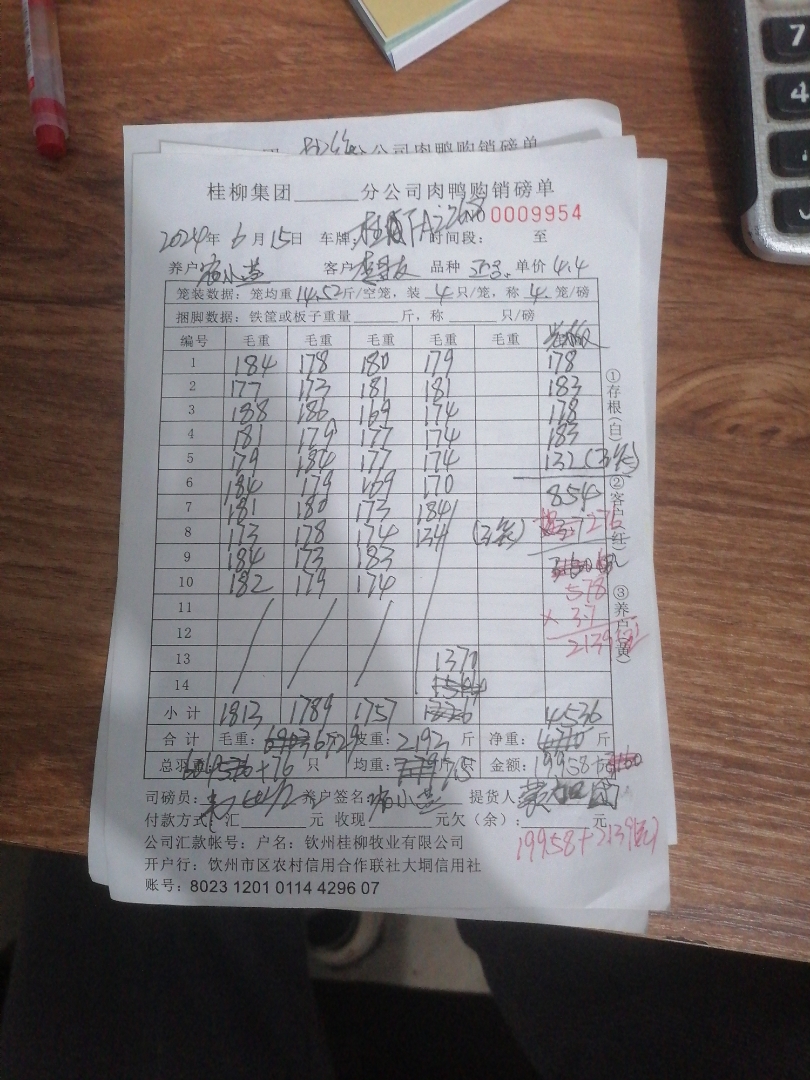 分公司肉鸭购销磅单
桂柳集团______分公司肉鸭购销磅单
NO 0009954
2024年 6月15日 车牌: 时间段: 至
养户 小燕 客户 品种 单价 4.4
笼装数据: 笼均重14.52斤/空笼, 装 4 只/笼, 称 4 笼/磅
捆脚数据: 铁筐或板子重量______斤, 称______只/磅
编号 毛重 毛重 毛重 毛重 毛重
1 184 178 180 179 178
2 177 173 181 181 183
3 188 186 169 174 178
4 181 179 177 174 183
5 179 184 177 174 132(3笼)
6 184 179 169 170 854
7 181 180 173 184 276
8 173 178 174 134 (3笼)
9 184 173 183
10 182 179 174 578
11 × 3.7
12 2139
13 1370
14
小计 1813 1789 1757 4536
合计 毛重: 6729 皮重: 2193 斤 净重: 斤
总羽数: +76 只 均重: 7.15 斤/只 金额: 19958+
司磅员: 养户签名: 小燕 提货人
付款方式: 汇______元 收现______元欠(余): ______元
19958+2139
公司汇款帐号: 户名: 钦州桂柳牧业有限公司
开户行: 钦州市区农村信用合作联社大垌信用社
账号: 8023 1201 0114 4296 07
①存根(白) ②客户(红) ③养户(黄)
7
4
1